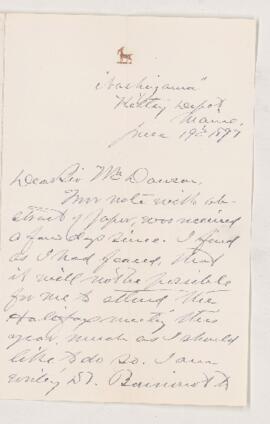 "Nashiyama"
Kittery Depot
Maine,
June 19th 1897
Dear Sir Wm Dawson,
Your note with ab-
stract of paper, was received
a few days since. I find
as I had feared, that
it will not be possible
for me to attend the
Halifax meeting this
year, much as I should
like to do so. I am
writing Dr.